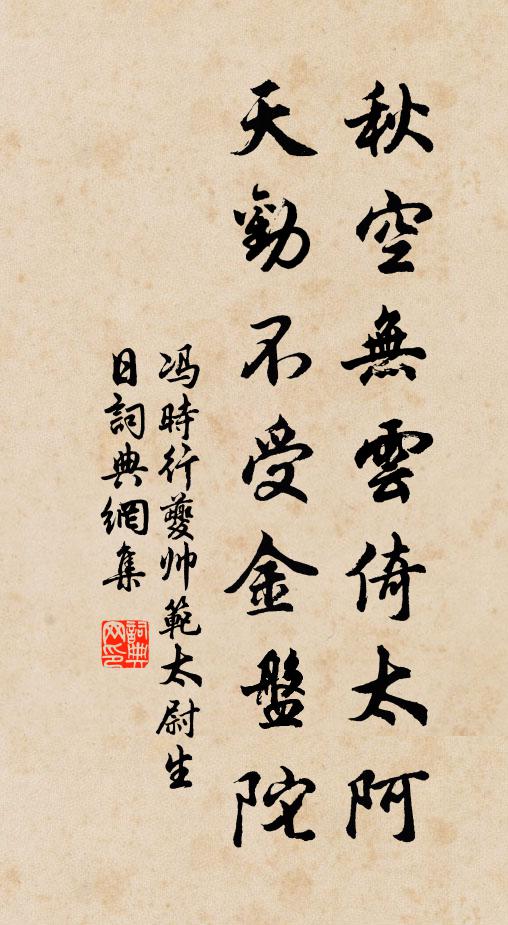 秋空無雲倚太阿
天勤不受金盤陀
冯時行夔帅範太尉生
日詞典網集
詞典網印